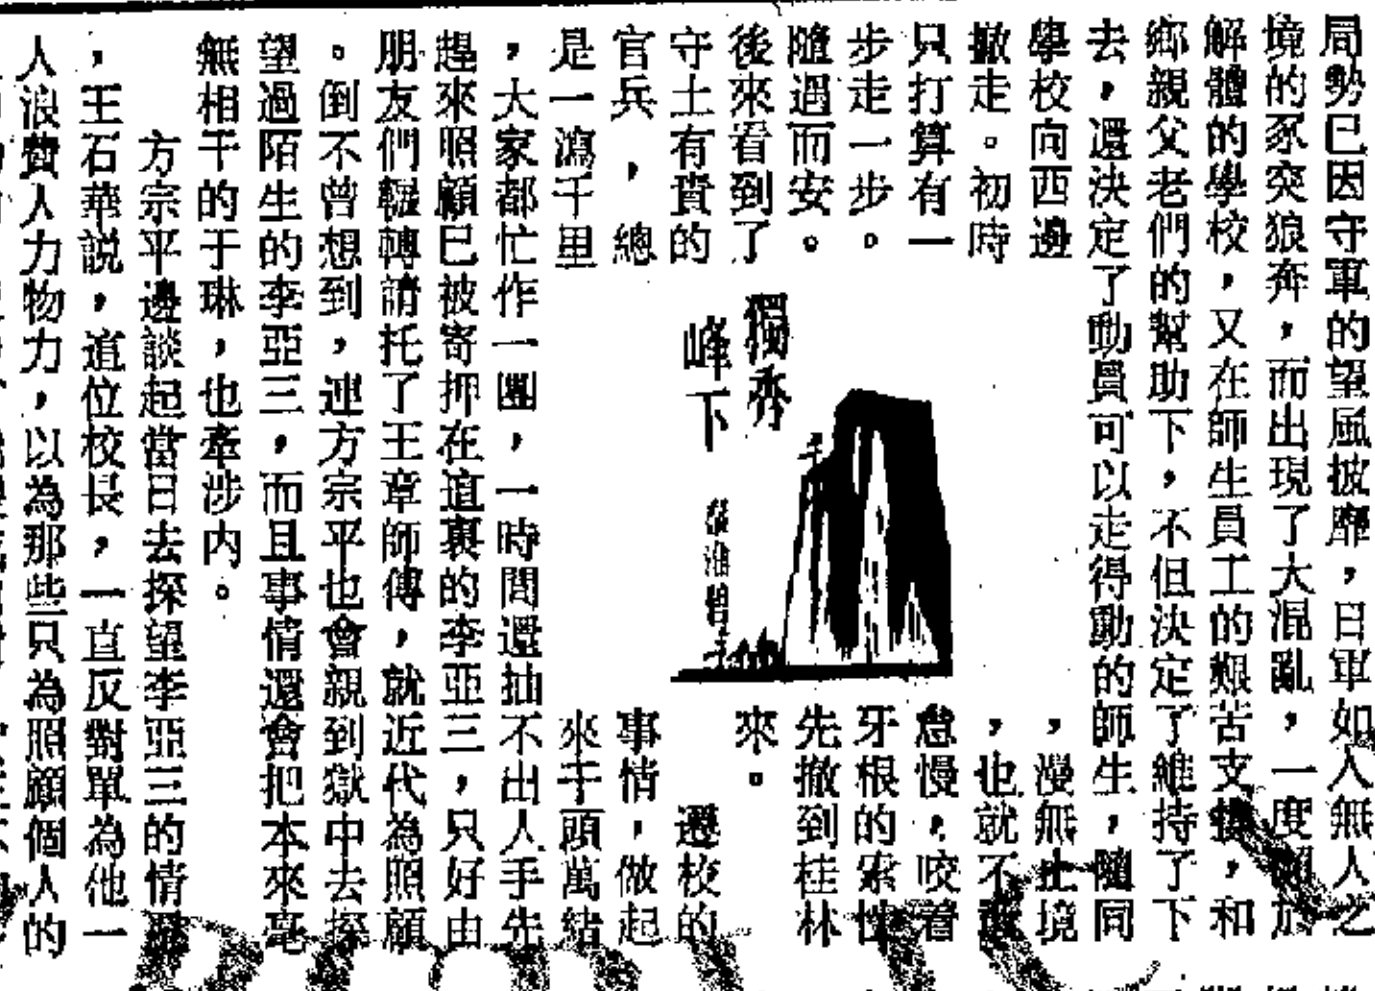 局勢已因守軍的望風披靡，日軍如入無人之
境的豕突狼奔，而出現了大混亂，一度瀕於
解體的學校，又在師生員工的艱苦支撐，和
鄉親父老們的幫助下，不但決定了維持了下
去，還決定了動員可以走得動的師生，隨同
學校向西邊
撤走。初時
只打算有一
步走一步。
隨遇而安。
後來看到了
守土有責的
官兵，總
是一瀉千里
獨秀
峰下
，漫無止境
，也就不敢
怠慢，咬着
牙根的索性
先撤到桂林
來。
遷校的
事情，做起
來千頭萬緒
，大家都忙作一團，一時間還抽不出人手先
趕來照顧已被寄押在這裏的李亞三，只好由
朋友們輾轉請托了王章師傅，就近代為照顧
。倒不曾想到，連方宗平也會親到獄中去探
望過陌生的李亞三，而且事情還會把本來毫
無相干的于琳，也牽涉內。
方宗平邊談起當日去探望李亞三的情
，王石華説，這位校長，一直反對單為他一
人浪費人力物力，以為那些只為照顧個人的